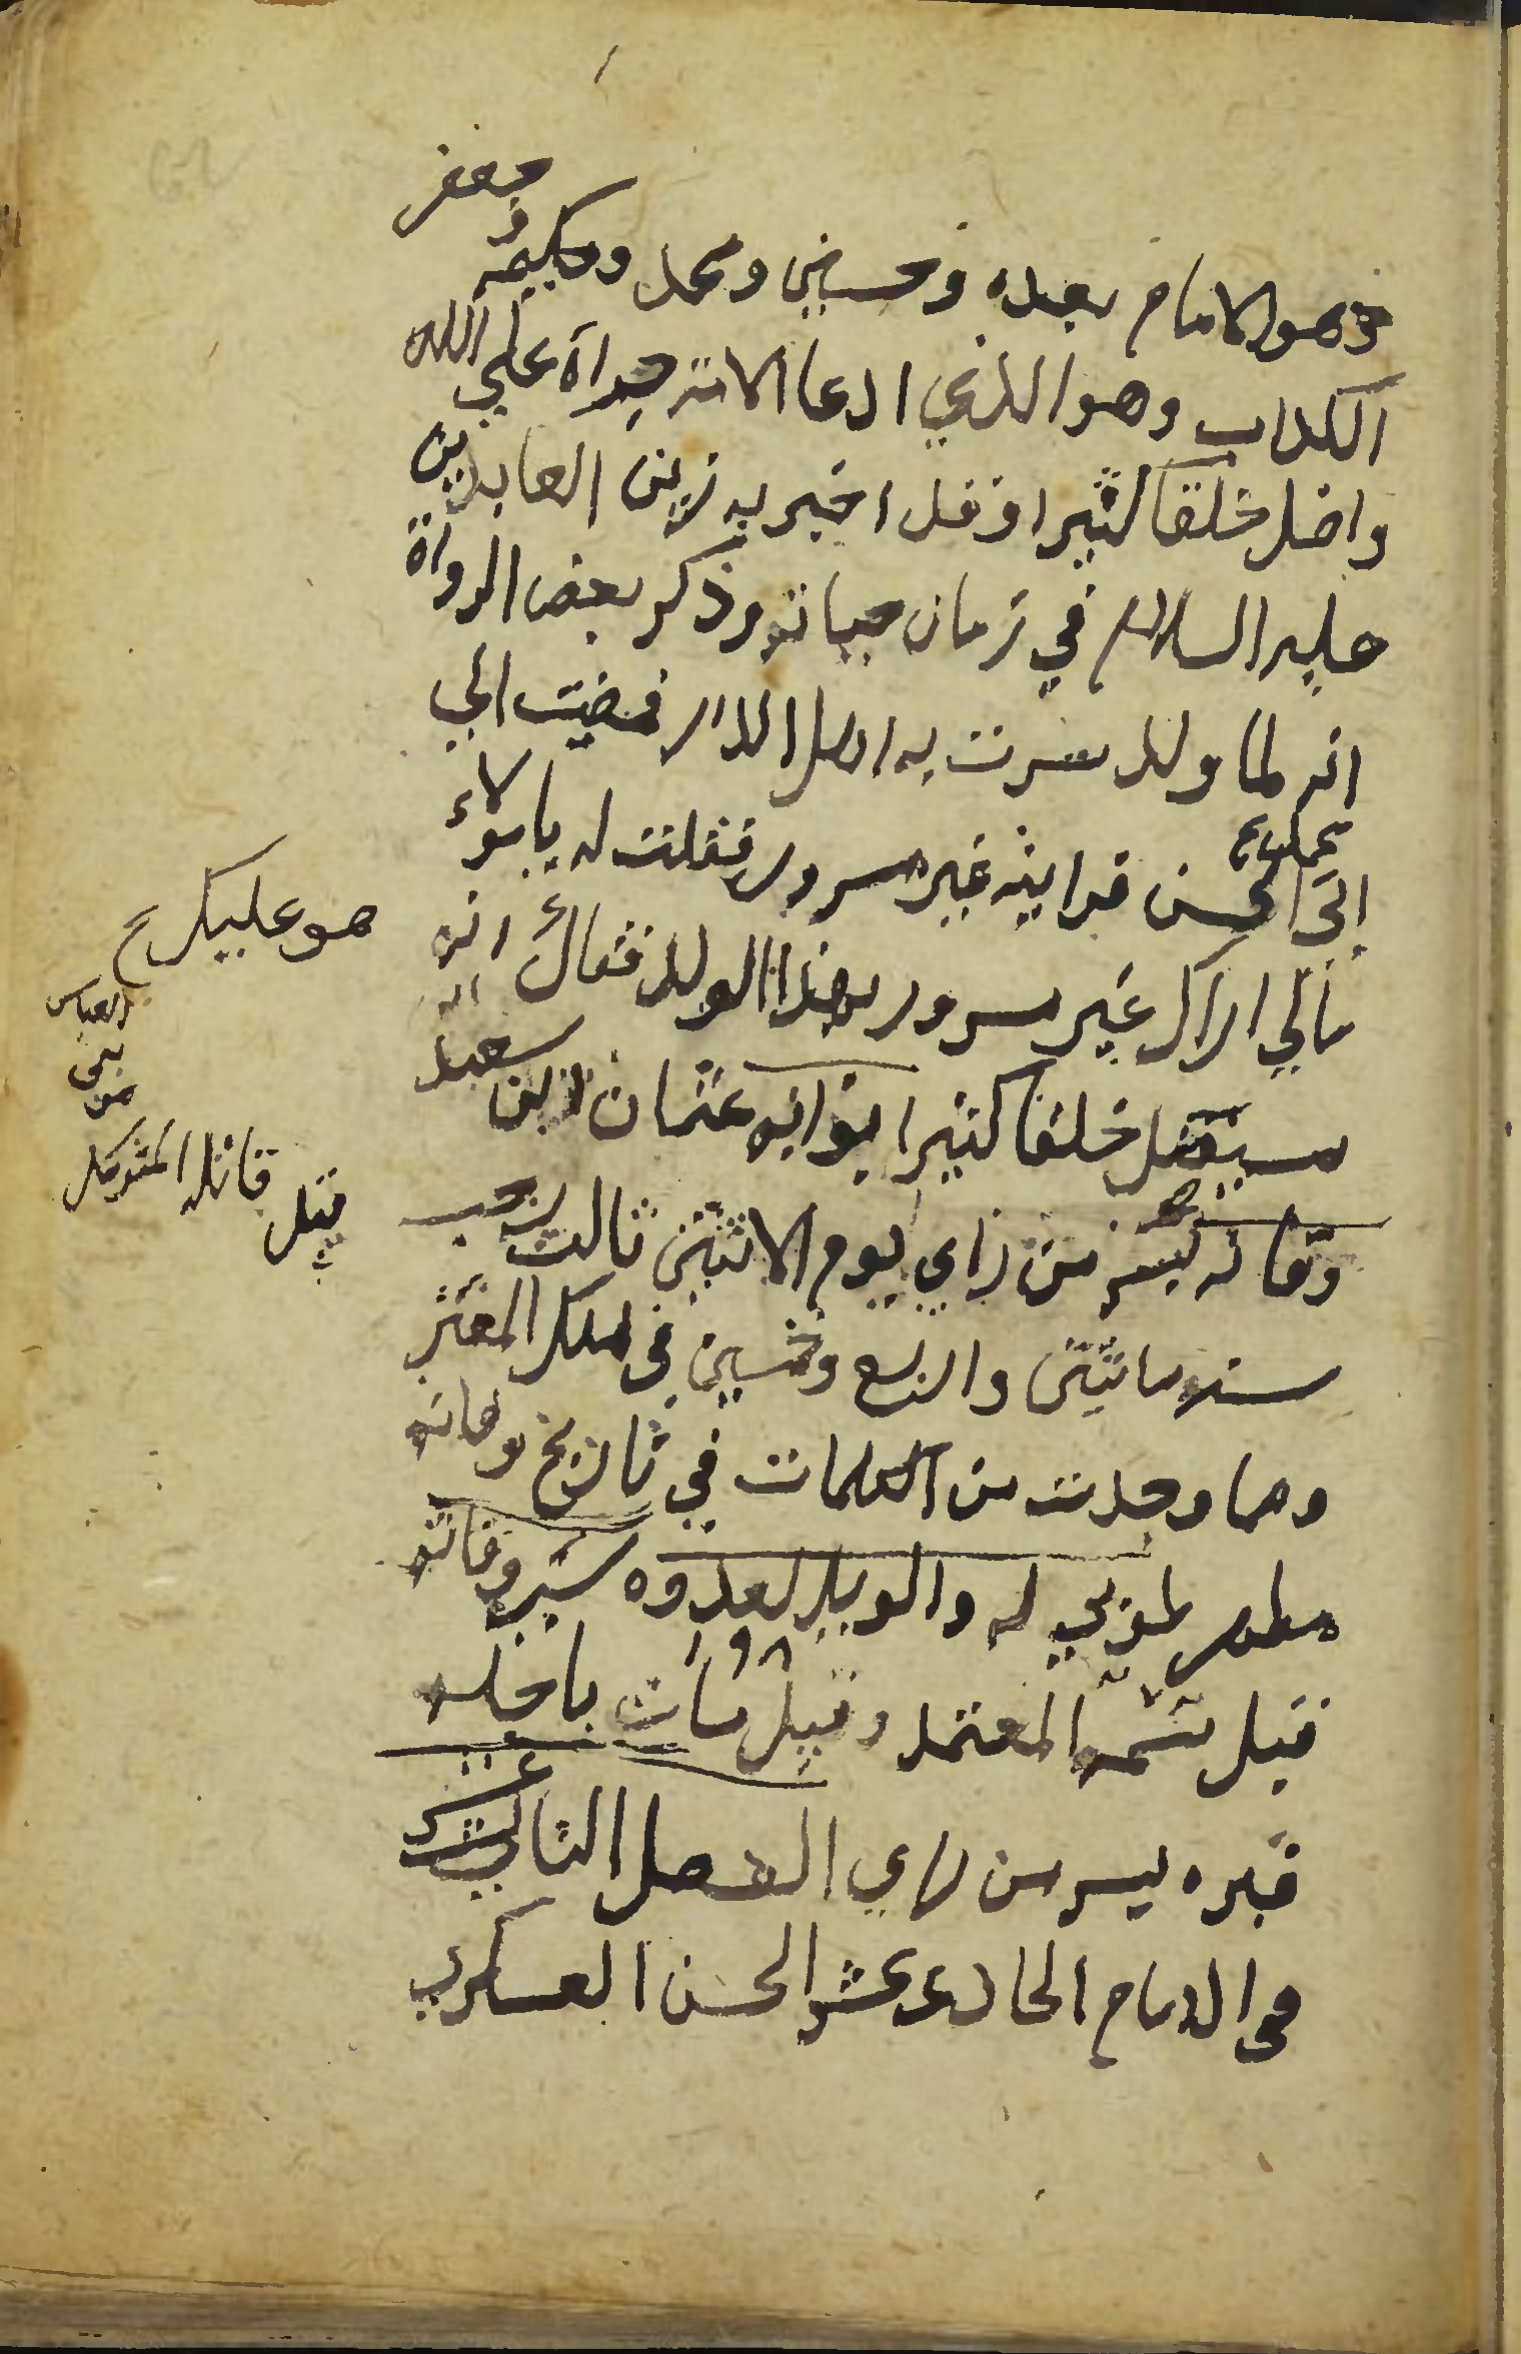 وهو الامام بعده وحسين ومحمد وحكيمه و جعفر
الكداب وهو الذي ادعا الامته جرأة علي الله
واضل خلقا كثيرا وقد اخبر به زين العابدين
عليه السلام في زمان حياته وذكر بعض الرواة
انه لما ولد سرت به اهل الدار فمضيت الي
ابي الحسن فرايته غير مسرور فقلت له يا مولاي
مالي اراك غير مسرور بهذا الولد فقال انه
سيضل خلقا كثيرا بوابه عثمان ابن سعيد
وفاته بسر من راي يوم الاثنين ثالث رجب
سنه مائتين واربع وخمسين في ملك المعتز
ومما وجدت من الكلمات في تاريخ وفاته
لموالي له والويل لعدوه وفاته
قيل سمه المعتمد وقيل مات باجله
قبره بسر من راي الفصل الثالث عشر
في الامام الحادي عشر الحسن العسكري
هو علييكم
العباس
بني
من
قيل قاتله المتوكل